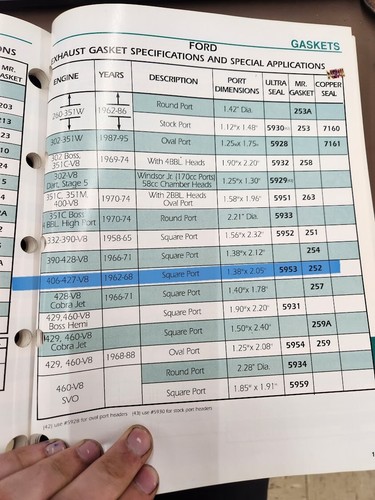 FORD
GASKETS
EXHAUST GASKET SPECIFICATIONS AND SPECIAL APPLICATIONS
ENGINE YEARS DESCRIPTION PORT DIMENSIONS ULTRA SEAL MR. GASKET COPPER SEAL
260-351W 1962-86 Round Port 1.42" Dia. 253A
Stock Port 1.12" x 1.48" 5930 253 7160
302-351W 1987-95 Oval Port 1.25" x 1.75" 5928 7161
302 Boss, 351C-V8 1969-74 With 4BBL. Heads 1.90" x 2.20" 5932 258
302-V8 Dart, Stage 5 Windsor Jr. (170cc Ports) 58cc Chamber Heads 1.25" x 1.30" 5929
351C, 351M, 400-V8 1970-74 With 2BBL. Heads Oval Port 1.58" x 1.96" 5951 263
351C Boss 4 BBL. High Port 1970-74 Round Port 2.21" Dia. 5933
332-390-V8 1958-65 Square Port 1.56" x 2.32" 5952 251
390-428-V8 1966-71 Square Port 1.38" x 2.12" 254
406-427-V8 1962-68 Square Port 1.38" x 2.05" 5953 252
428-V8 Cobra Jet 1966-71 Square Port 1.40" x 1.78" 257
429,460-V8 Boss Hemi Square Port 1.90" x 2.20" 5931
429, 460-V8 Cobra Jet Square Port 1.50" x 2.40" 259A
429, 460-V8 1968-88 Oval Port 1.25" x 2.08" 5954 259
Round Port 2.28" Dia. 5934
460-V8 SVO Square Port 1.85" x 1.91" 5959
(42) use #5928 for oval port headers (43) use #5930 for stock port headers